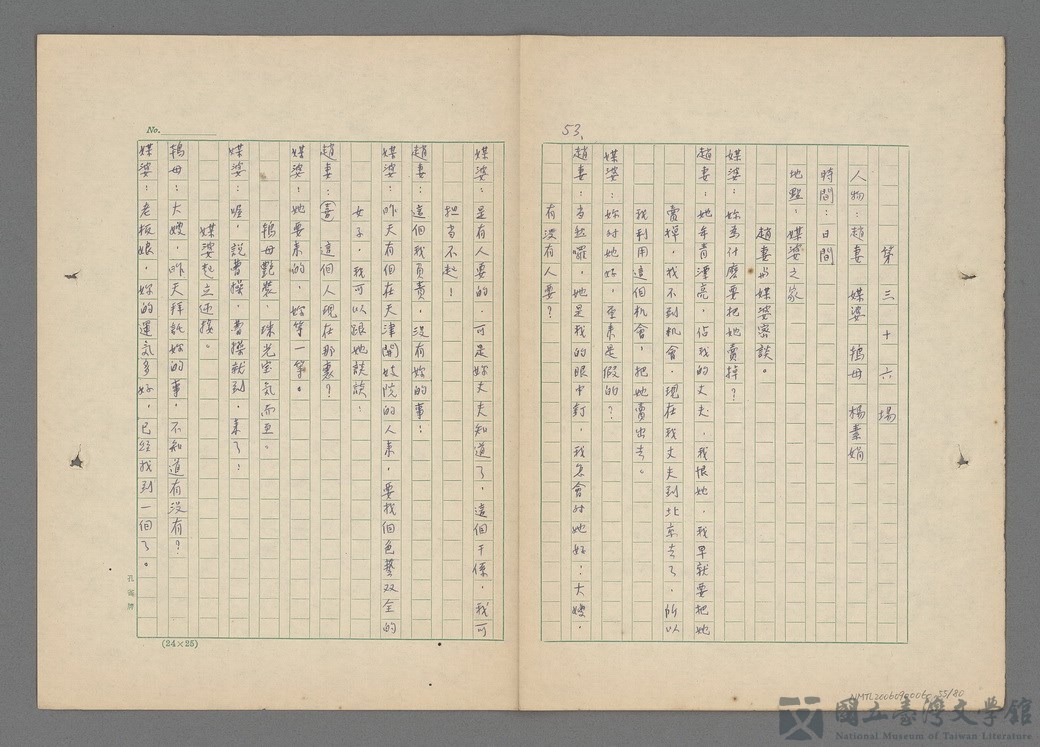 53.
第三十六場
人物：趙妻 媒婆 鴇母 楊素娟
時間：日間
地點：媒婆之家
趙妻与媒婆密談。
媒婆：妳為什麼要把她賣掉？
趙妻：她年青漂亮，佔我的丈夫，我恨她，我早就要把她
賣掉，找不到机會，現在我丈夫到北京去了，所以
我利用這個机會，把她賣出去。
媒婆：妳对她好，原來是假的？
趙妻：当然囉，她是我的眼中釘，我怎會对她好：大嫂，
有沒有人要？
媒婆：是有人要的，可是妳丈夫知道了，這個干係，我可
担当不起！
趙妻：這個我負責，沒有妳的事：
媒婆：昨天有個在天津開妓院的人來，要找個色藝双全的
女子，我可以跟她談談：
趙妻：（喜）這個人現在那裏？
媒婆：她要來的，妳等一等。
鴇母艷裝，珠光宝氣而至。
媒婆：喔，說曹操，曹操就到，來了：
媒婆起立迎接。
鴇母：大嫂，昨天拜託妳的事，不知道有沒有？
媒婆：老板娘，妳的運氣多好，已經找到一個了。
No.
孔雀牌
(24×25)
國立臺灣文學館
National Museum of Taiwan Literature